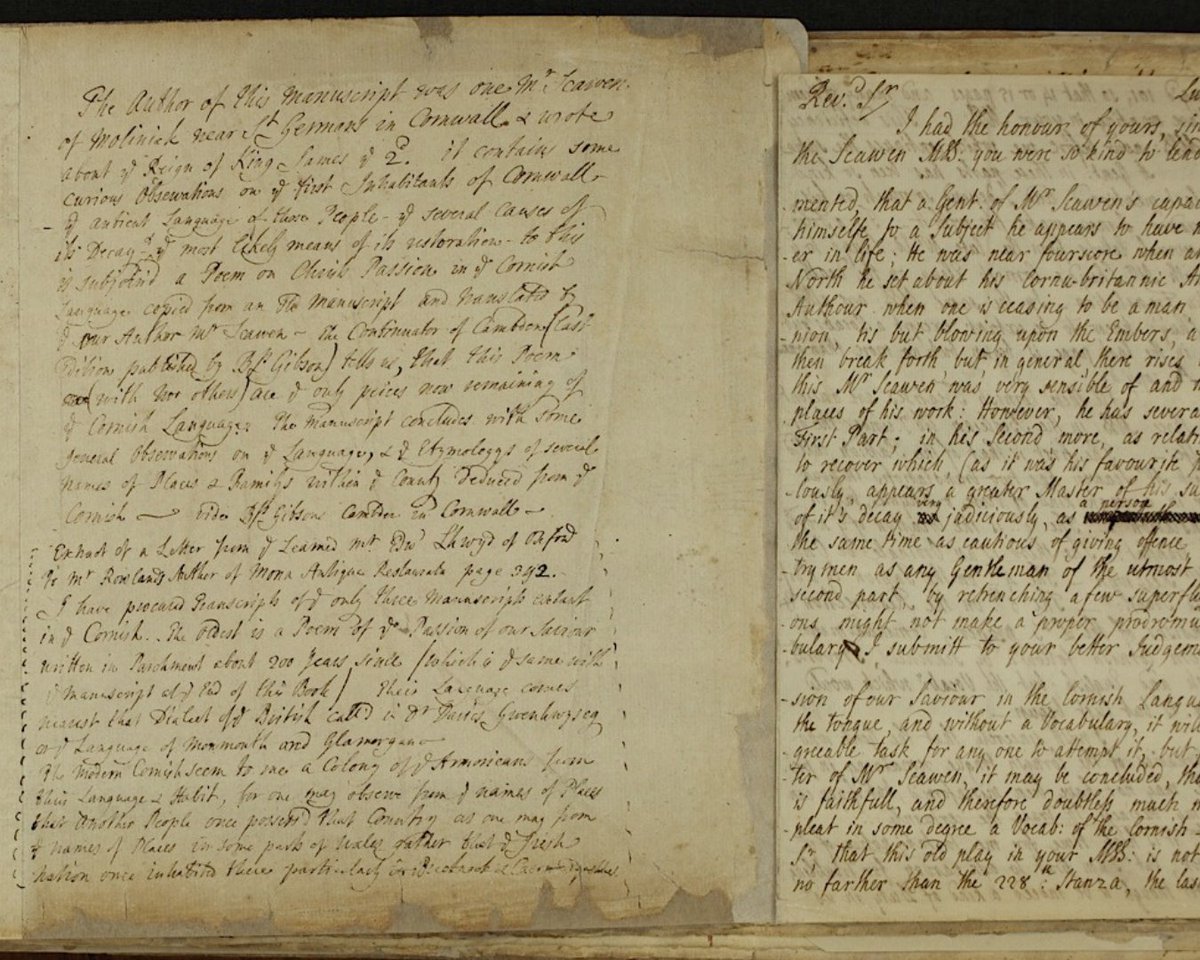 The Author of this Manuscript was one Mr Scawen
of Molinick near St Germans in Cornwall & wrote
about ye Reign of King James ye 2d. it contains some
curious Observations on ye first Inhabitants of Cornwall
ye antient Language of those People - ye several causes of
its Decay & ye most likely means of its restoration - to this
is subjoind a Poem on Christs Passion in ye Cornish
Language copied from an Old Manuscript and translated by
our Author Mr Scawen - the Continuator of Cambden (last
Edition published by Bp Gibson) tells us, that this Poem
(with two others) are ye only peices now remaining of
ye Cornish Language. The Manuscript concludes with some
general Observations on ye Language, & ye Etymologys of several
names of Places & Familys within ye County Deduced from ye
Cornish — vide Bp Gibsons Camden in Cornwall -
Extract of a Letter from ye Learned Mr Edwd Lhwyd of Oxford
to Mr Rowlands Author of Mona Antiqua Restaurata page 342.
I have procured Transcripts of ye only three Manuscripts extant
in ye Cornish. The oldest is a Poem of ye Passion of our Saviour
written in Parchment about 200 years since (which is ye same with
ye Manuscript at ye End of this Book) their Language comes
nearest that Dialect of ye British calld in Dr Davies Gwenhwyseg
or ye Language of Monmouth and Glamorgan
The Modern Cornish seem to me a Colony of ye Armoricans from
their Language & Habit, for one may observe from ye names of Places
that Another People once possessd that Country as one may from
ye names of Places in some parts of Wales gather that ye Irish
nation once inhabited there particularly in
Revd. Sr
I had the honour of yours,
the Scawen MSS: you were so kind to lend
mented, that a Gent. of Mr Scawen's
himselfe to a Subject he appears to have
er in life; He was near fourscore when
North he set about his Cornu-britannic
Authour when one is ceasing to be a man
nion, tis but blowing upon the Embers,
then break forth, but, in general, there rises
this Mr Scawen was very sensible of and
places of his work: However, he has
First Part; in his Second more, as
to recover which, (as it was his favourite
lously, appears a greater Master of his
of it's decay very judiciously, as a person
the same time as cautious of giving offence
trymen as any Gentleman of the utmost
second part, by retrenching a few
ons might not make a proper prodromus
bulary. I submitt to your better
sion of our Saviour in the Cornish
the tongue, and without a Vocabulary, it
greable task for any one to attempt it, but
ter of Mr Scawen, it may be concluded,
is faithfull, and therefore doubtless much
pleat in some degree a Vocab: of the Cornish
Sr, that this old play in your MSS: is not
no farther than the 228th: Stanza, the